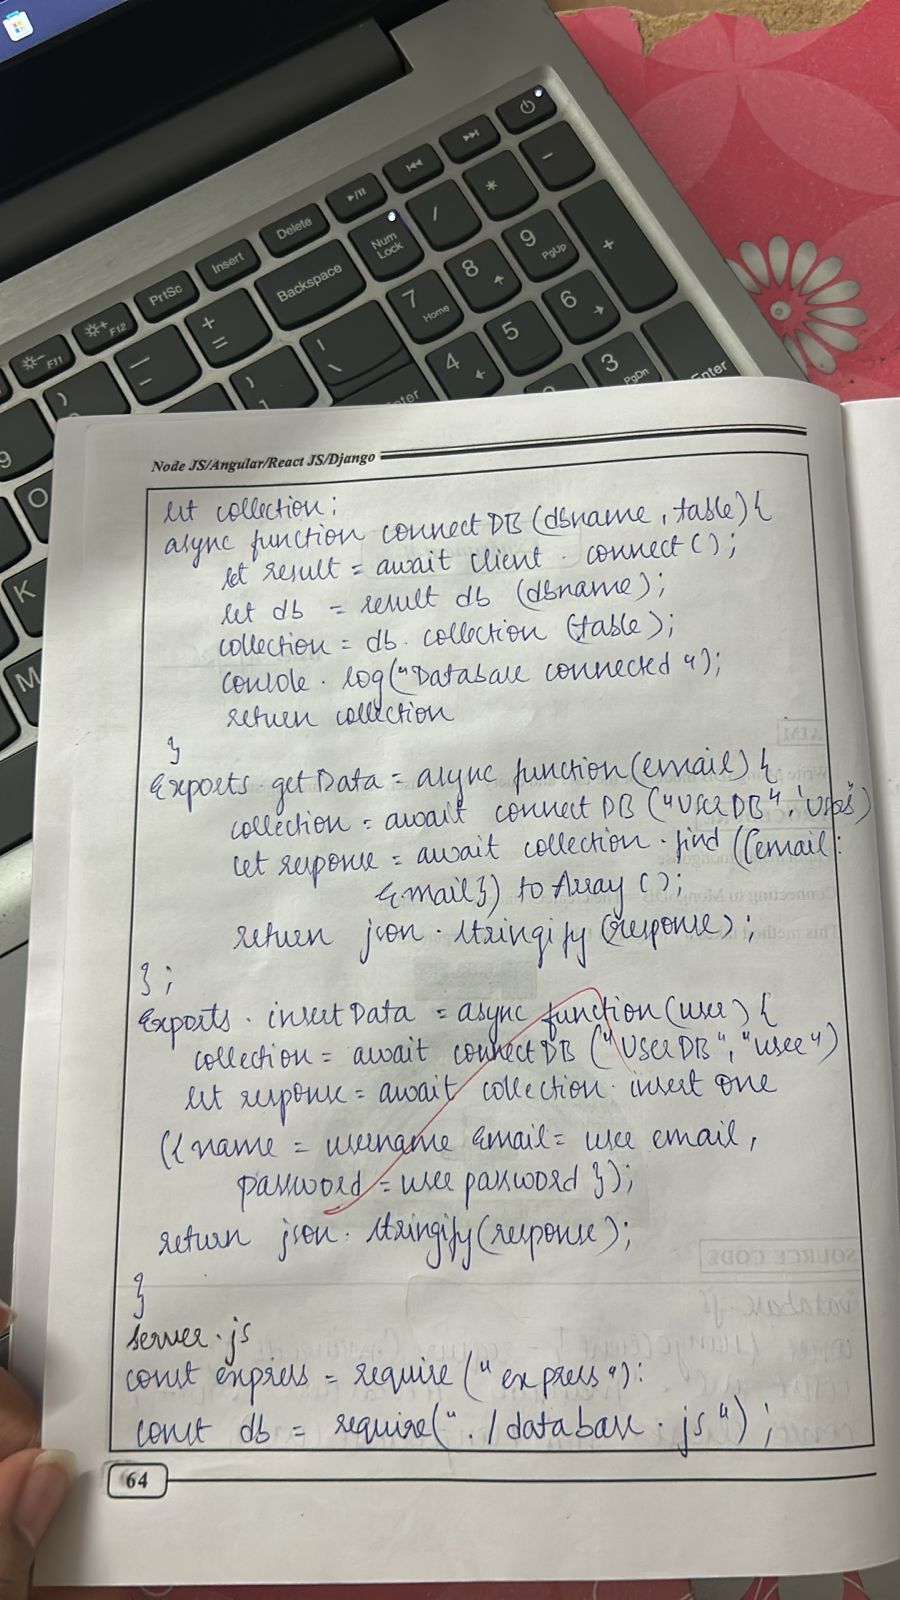 Delete
Insert
PrtSc
F12
F11
Backspace
Num
Lock
7
Home
8
9
PgUp
4
5
6
3
PgDn
Enter
9
O
K
M
Node JS/Angular/React JS/Django
let collection;
async function connect DB (dbname, table) {
let result = await client . connect ();
let db = result db (dbname);
collection = db. collection (table);
console . log("Database connected");
return collection
}
Exports . get Data = async function (email) {
collection = await connect DB ("User DB",
let response = await collection . find ({email:
Email}) to Array ();
return json . stringify (response);
};
Exports . insert Data = async function (user) {
collection = await connect DB ("User DB", "user")
let response = await collection . insert one
({name = username Email = user email,
password = user password });
return json . stringify (response);
}
server . js
const express = require ("express"):
const db = require("./database . js");
64
AIM
SOURCE CODE